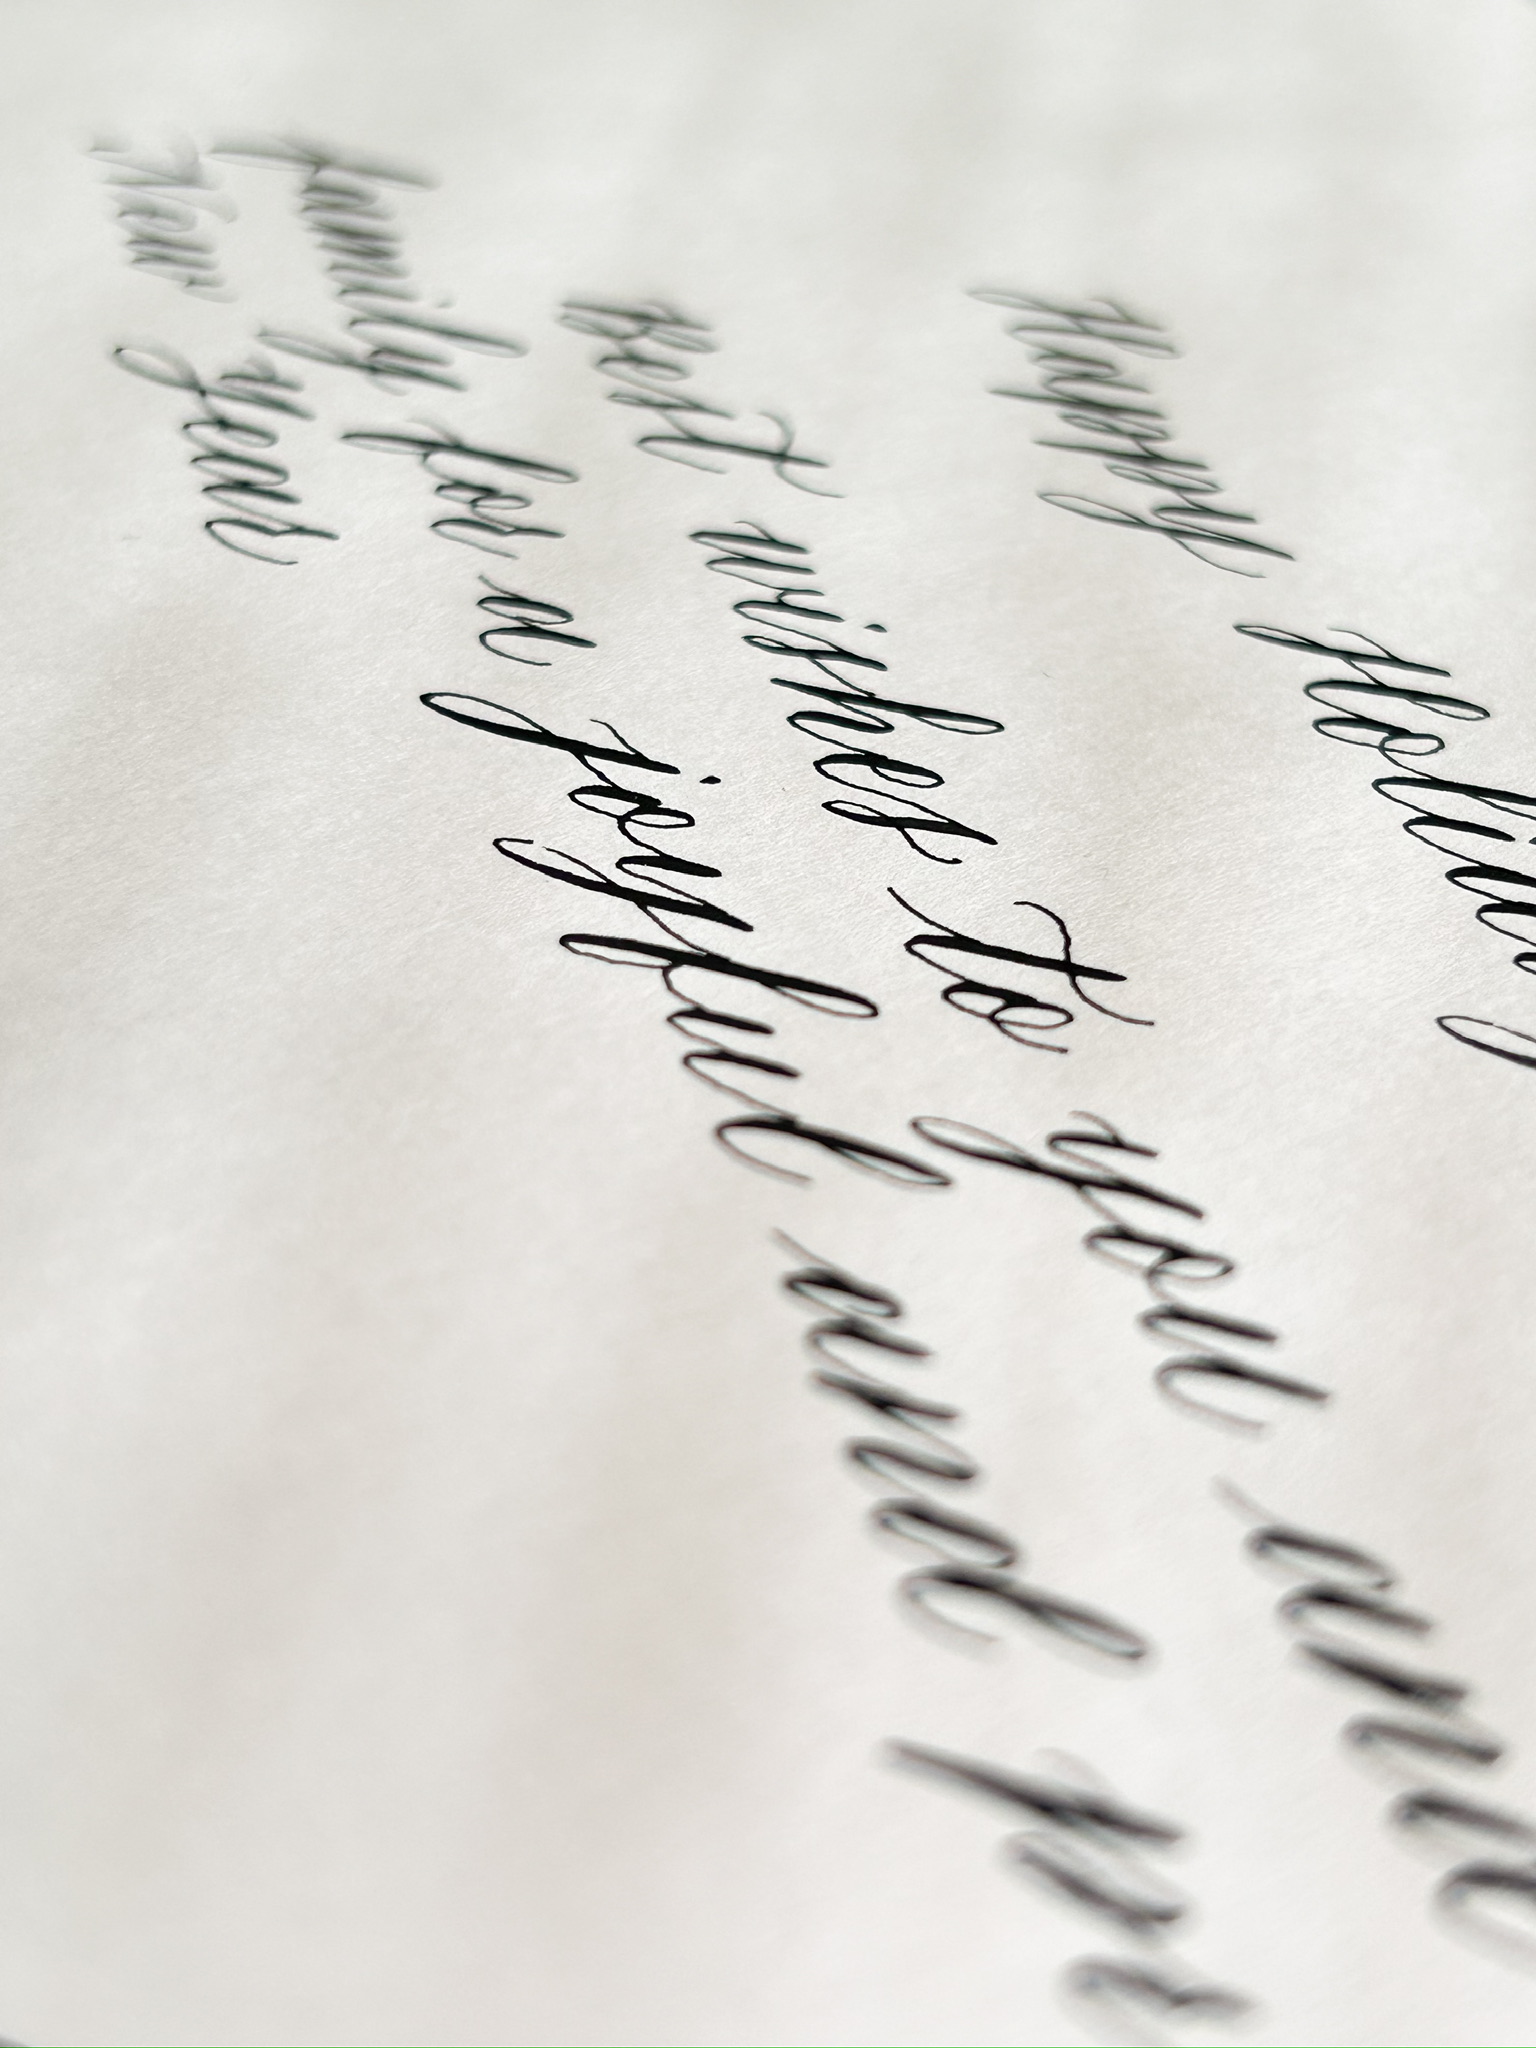 Happy Holiday
Best wishes to you and
family for a joyful and
New year